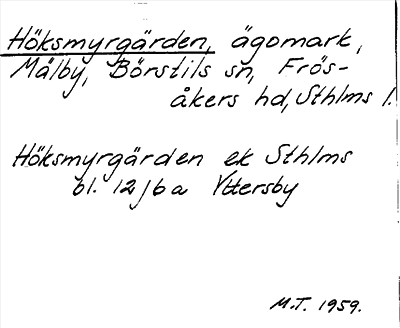 Höksmyrgärden, ägomark,
Målby, Börstils sn, Frös-
åkers hd, Sthlms l.
Höksmyrgärden ek Sthlms
bl. 12 j 6 a Yttersby
M.T. 1959.